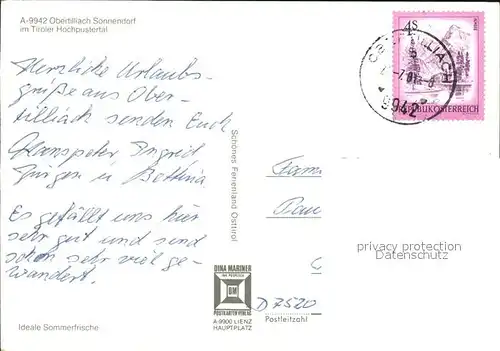 A-9942 Obertilliach Sonnendorf
im Tiroler Hochpustertal
Herzliche Urlaubs-
grüße aus Ober-
tilliach senden Euch
Hanspeter Ingrid
Jürgen u Bettina
Es gefällt uns hier
sehr gut und sind
schon sehr viel ge-
wandert.
Ideale Sommerfrische
Schönes Ferienland Osttirol
DINA MARINER
DM
POSTKARTEN VERLAG
A-9900 LIENZ
HAUPTPLATZ
4S
REPUBLIK ÖSTERREICH
9942
Fam
Pau
D 7520
Postleitzahl
privacy protection
Datenschutz